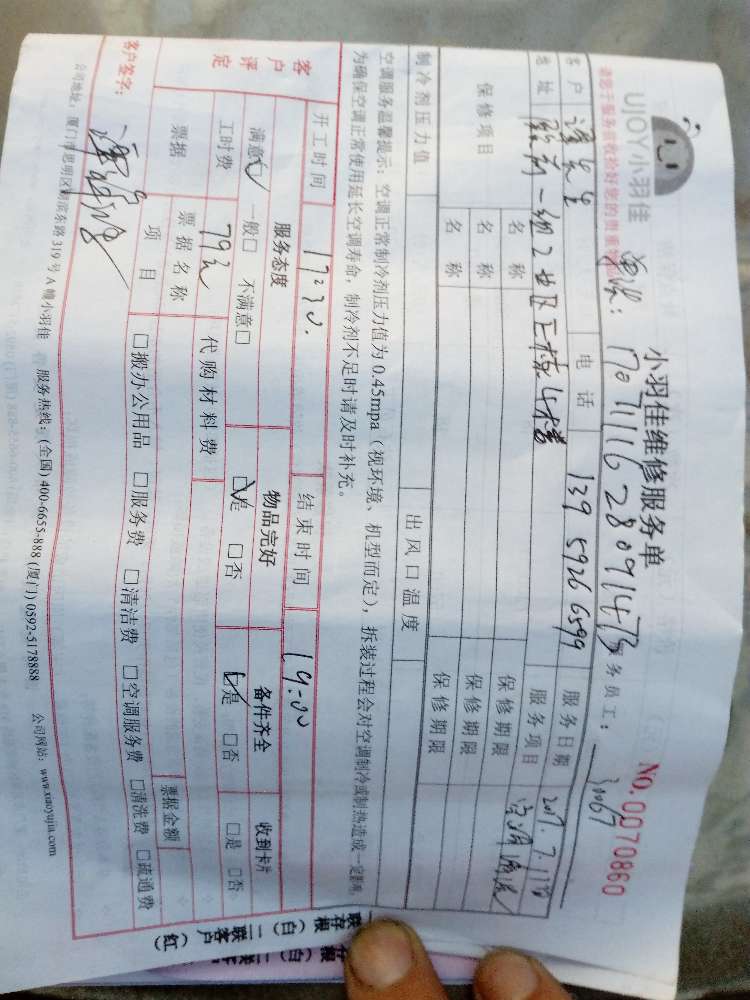 UJOY小羽佳
小羽佳维修服务单
NO.0070860
请您于服务前收拾好您的贵重物品
单号: 170711162809147 服务员工: 30067
客户 谭先生 电话 139 5926 6599 服务日期 2017.7.11
地址 服务项目 空调清洗
保修项目 名称 保修期限
名称 保修期限
名称 保修期限
制冷剂压力值 出风口温度
空调服务温馨提示: 空调正常制冷剂压力值为0.45mpa (视环境、机型而定), 拆装过程会对空调制冷或制热造成一定影响,
为确保空调正常使用延长空调寿命, 制冷剂不足时请及时补充。
开工时间 17:30. 结束时间 19:00
客户评定 服务态度 物品完好 备件齐全 收到卡片
满意☑ 一般□ 不满意□ ☑是 □否 ☑是 □否 □是 □否
工时费 79元 代购材料费
票据 票据名称 票据金额
项目 □搬办公用品 □服务费 □清洁费 □空调服务费 □清洗费 □疏通费
客户签字:
公司地址: 厦门市思明区湖滨东路319号A幢小羽佳 服务热线: (全国) 400-6655-888 (厦门) 0592-5178888 公司网站: www.xiaoyujia.com
一联存根 (白) 二联客户 (红)